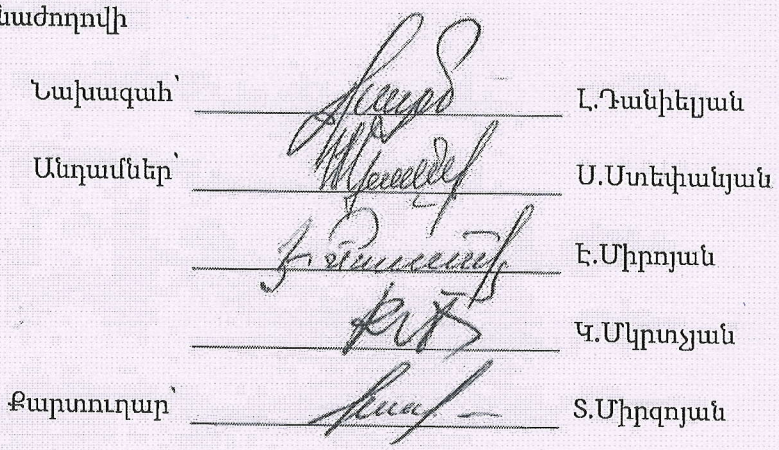 նաժողովի
Նախագահ՝ Լ.Դանիելյան
Անդամներ՝ Ս.Ստեփանյան
Է.Միրոյան
Կ.Մկրտչյան
Քարտուղար՝ Տ.Միրզոյան